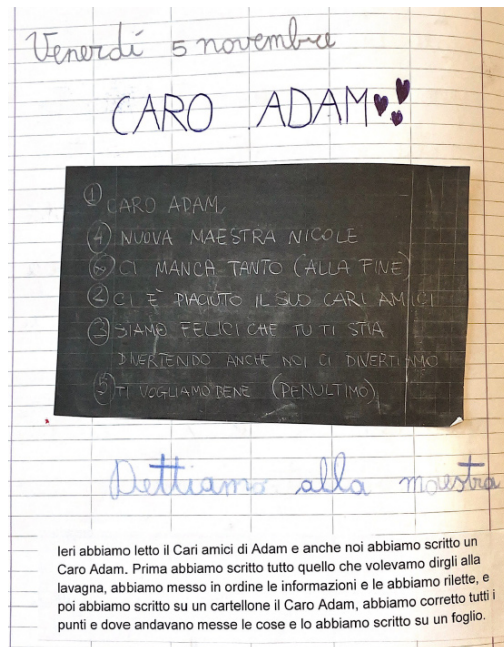 Venerdí 5 novembre
CARO ADAM
① CARO ADAM,
④ NUOVA MAESTRA NICOLE
⑥ CI MANCA TANTO (ALLA FINE)
② CI È PIACIUTO IL SUO CARI AMICI
③ SIAMO FELICI CHE TU TI STIA
DIVERTENDO ANCHE NOI CI DIVERTIAMO
⑤ TI VOGLIAMO BENE (PENULTIMO)
Dettiamo alla maestra
Ieri abbiamo letto il Cari amici di Adam e anche noi abbiamo scritto un
Caro Adam. Prima abbiamo scritto tutto quello che volevamo dirgli alla
lavagna, abbiamo messo in ordine le informazioni e le abbiamo rilette, e
poi abbiamo scritto su un cartellone il Caro Adam, abbiamo corretto tutti i
punti e dove andavano messe le cose e lo abbiamo scritto su un foglio.